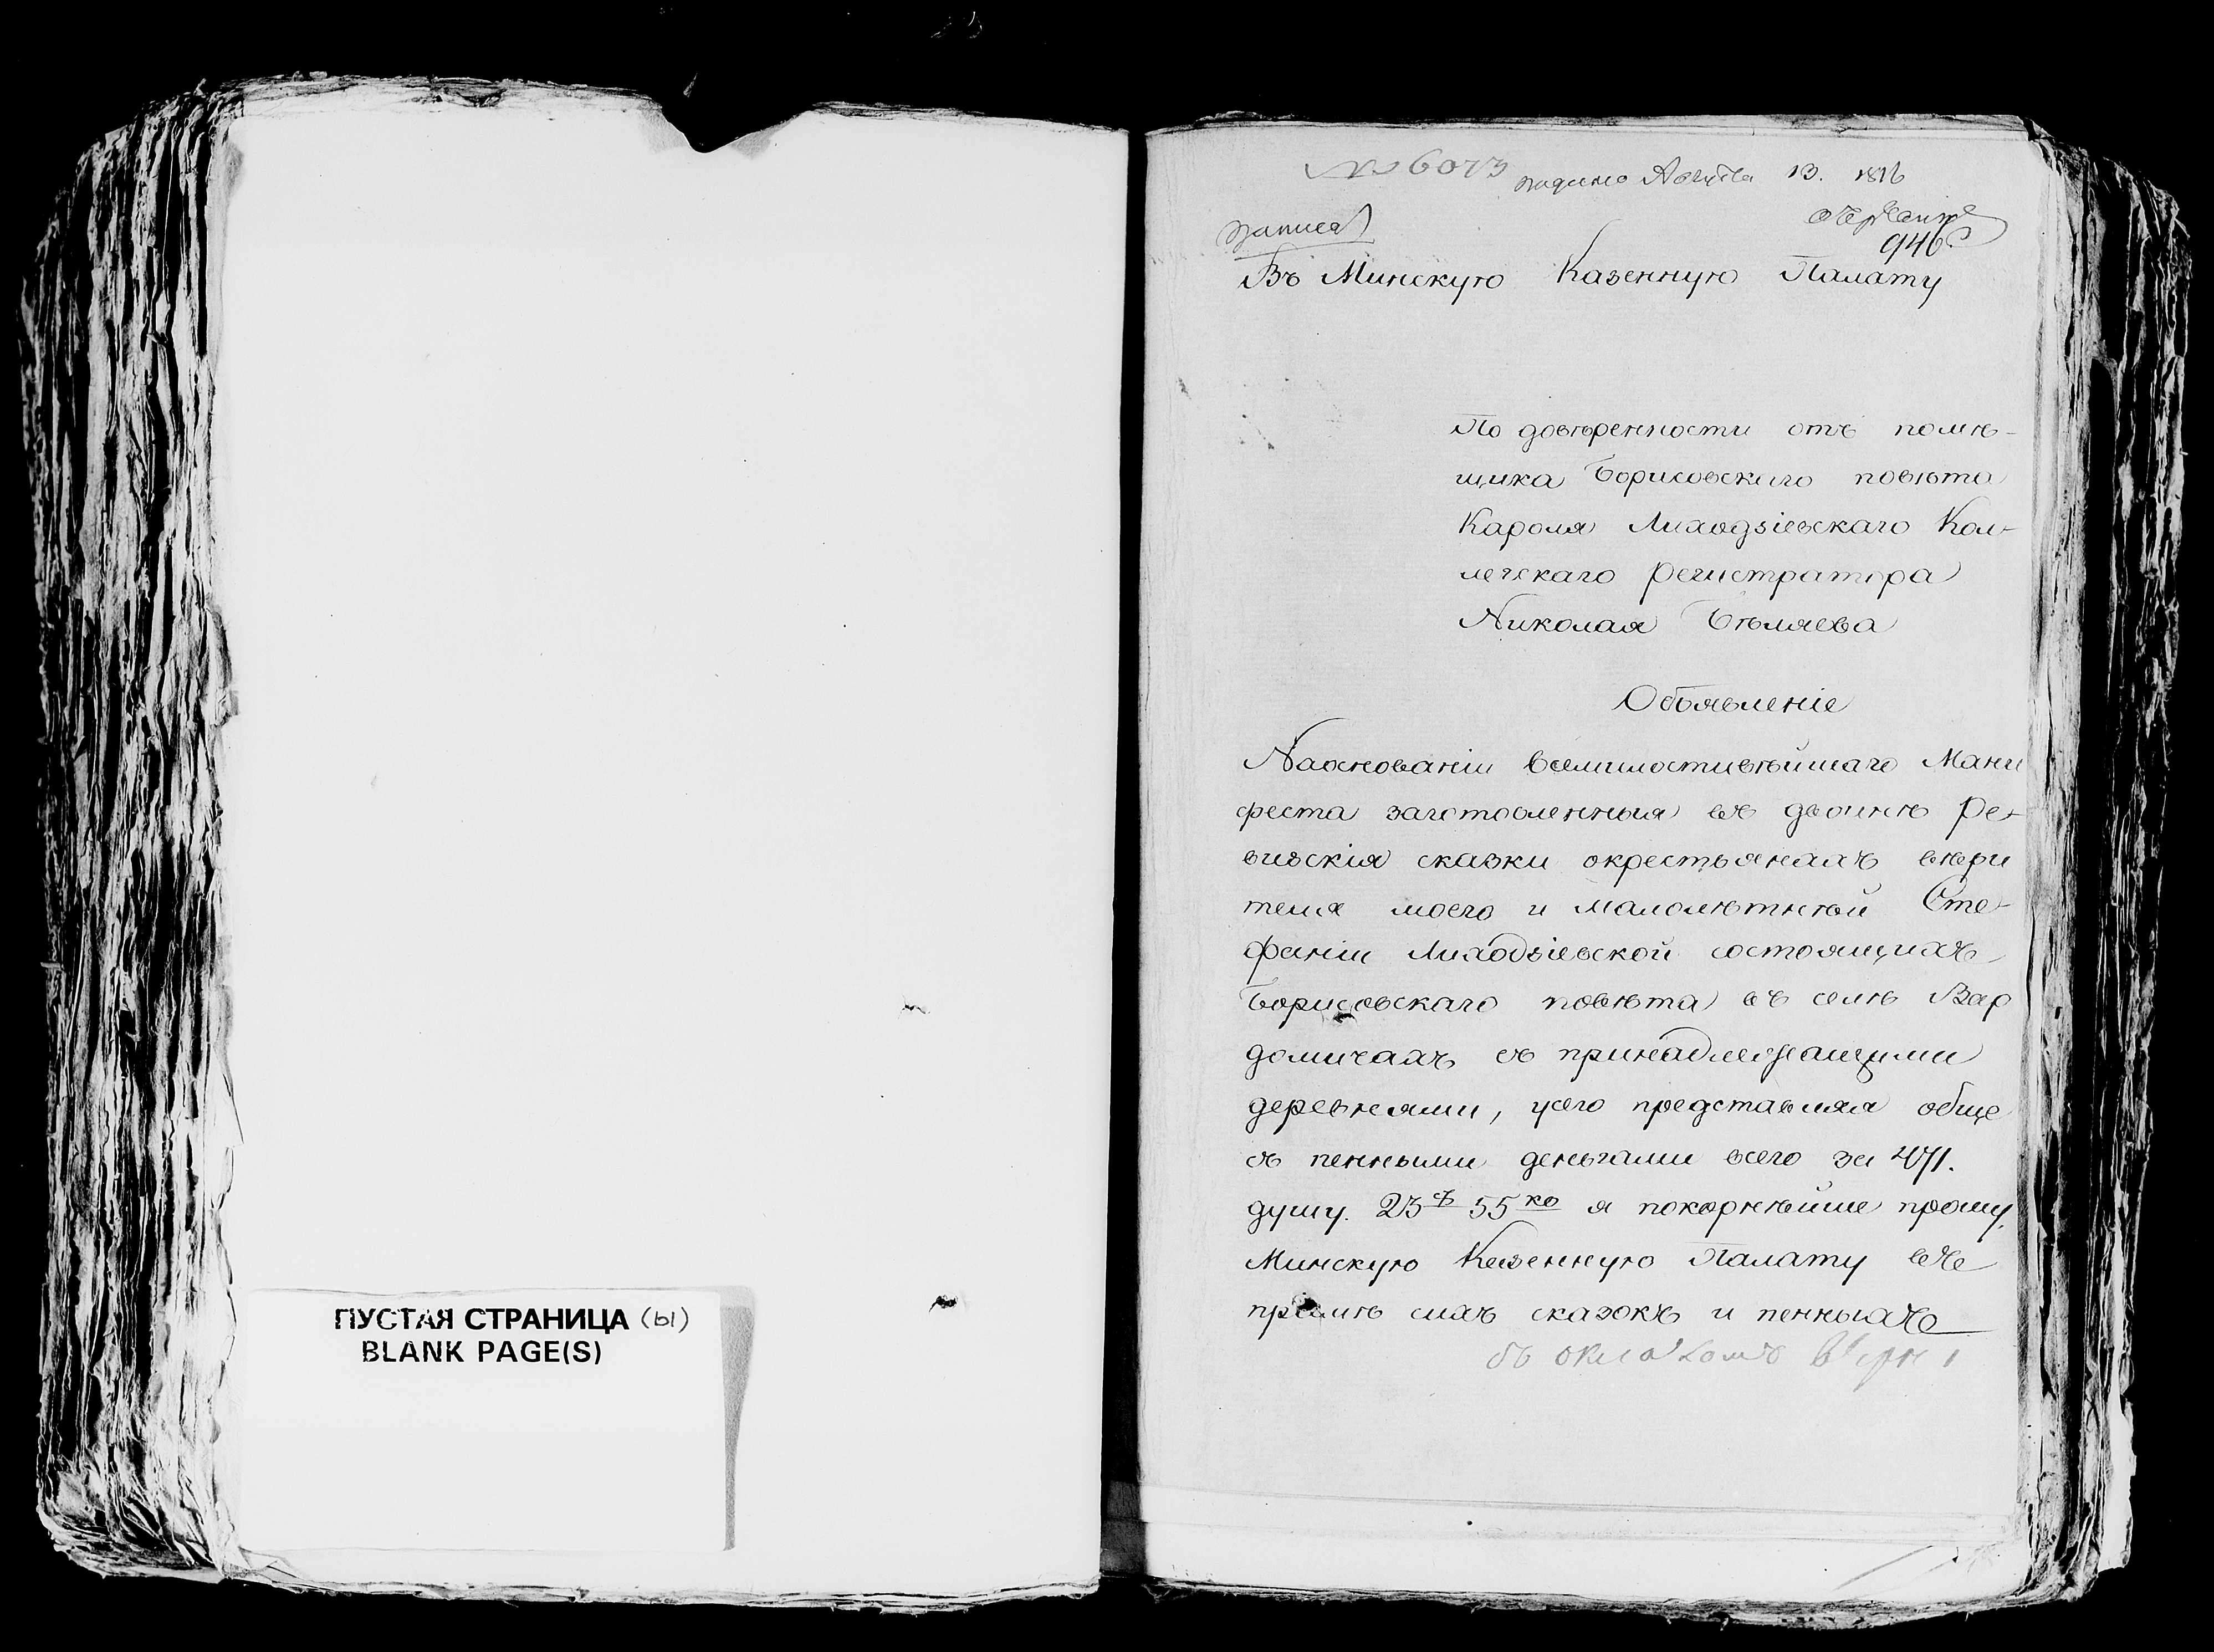 ПУСТАЯ СТРАНИЦА (ы)
BLANK PAGE(S)
№ 6073 подано Августа 13. 1816
946
Въ Минскую Казенную Палату
По довѣренности отъ помѣ-
щика Борисовскаго повѣта
Кароля Лиходзіевскаго Кол-
легскаго Регистратора
Николая Бѣляева
Объявленіе
Наоснованіи Всемилостивѣйшаго Мани
феста заготовленныя въ двоинѣ Ре-
визскія сказки окрестьянахъ вѣри
теля моего и малолѣтнѣй Сте-
фаніи Лиходзіевской состоящихъ
Борисовскаго повѣта въ селѣ Вар
домичахъ съ принадлежащими
деревнями, представляя обще
съ пенными деньгами всего за 471.
душу. 23 55 ко я покорнѣйше прошу
Минскую Казенную Палату
сихъ сказокъ и пенныхъ